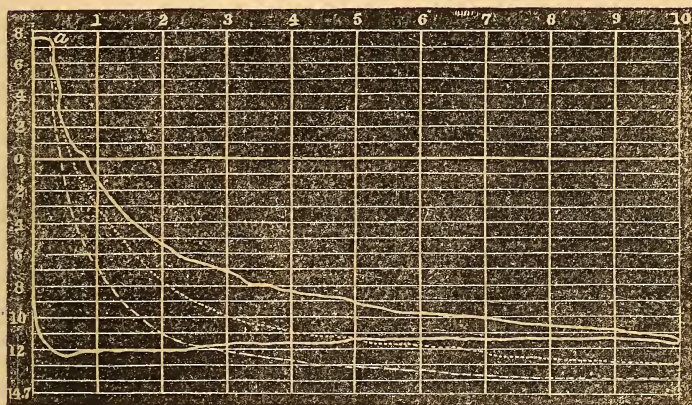 1 2 3 4 5 6 7 8 9 10
8 a
6
4
2
0
2
4
6
8
10
12
14.7